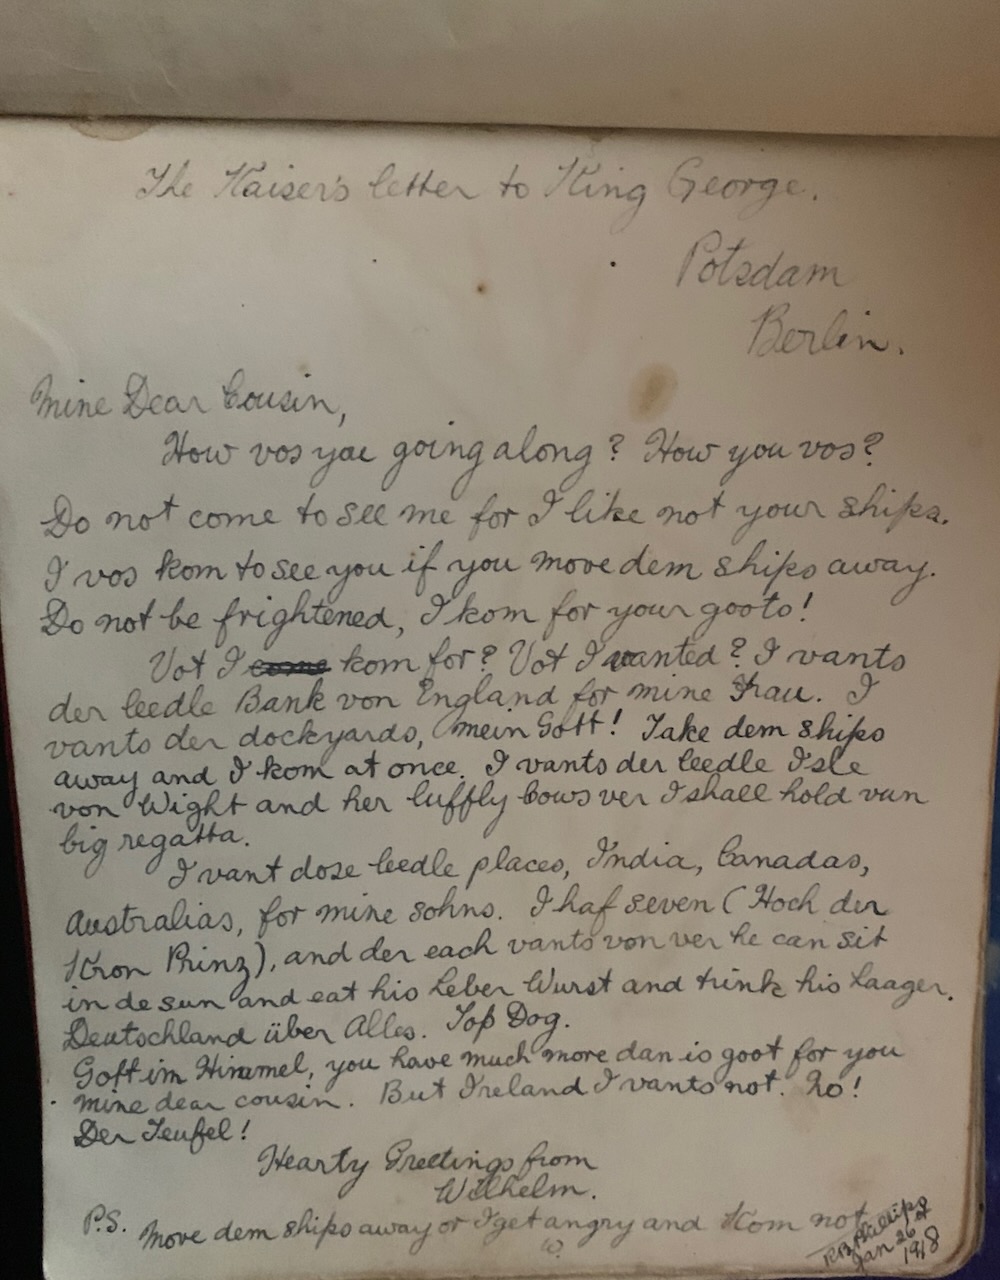 The Kaiser's letter to King George.
Potsdam
Berlin.
Mine Dear Cousin,
How vos you going along? How you vos?
Do not come to see me for I like not your ships.
I vos kom to see you if you move dem ships away.
Do not be frightened, I kom for your gooto!
Vot I come kom for? Vot I wanted? I vants
der leedle Bank von England for mine Frau. I
vants der dockyards, mein Gott! Take dem ships
away and I kom at once. I vants der leedle Isle
von Wight and her luffly Cows ver I shall hold vun
big regatta.
I vant dose leedle places, India, Canadas,
Australias, for mine sohns. I haf seven (Hoch der
Kron Prinz), and der each vants von ver he can sit
in de sun and eat his Leber Wurst and trink his Laager.
Deutschland über Alles. Top Dog.
Gott im Himmel, you have much more dan is goot for you
mine dear cousin. But Ireland I vants not. No!
Der Teufel!
Hearty Greetings from
Wilhelm.
P.S. Move dem ships away or I get angry and Kom not
W.
Phillips
Jan 26
1918